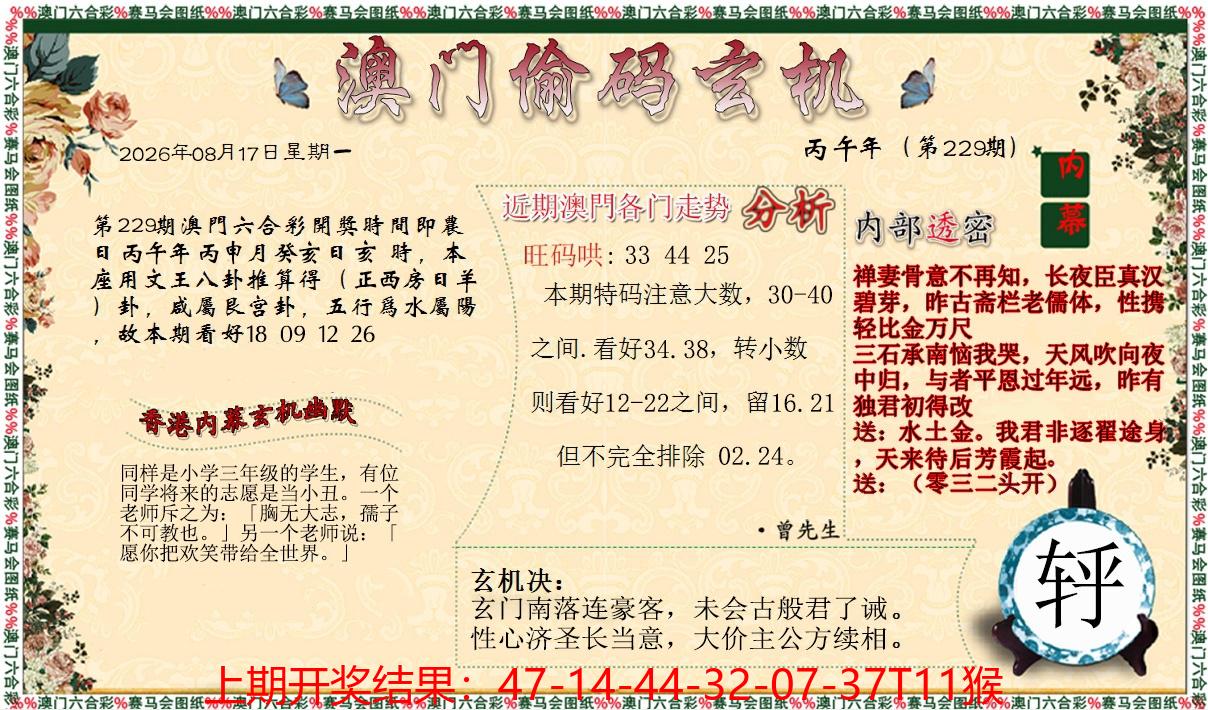 %%澳门六合彩%赛马会图纸%%澳门六合彩%赛马会图纸%%澳门六合彩%赛马会图纸%%澳门六合彩%赛马会图纸%%澳门六合彩%赛马会图纸%%澳门六合彩%赛马会图纸%%
澳门偷码玄机
2026年08月17日星期一
丙午年（第229期）
内幕
第229期澳門六合彩開獎時間即農
日丙午年丙申月癸亥日亥 時，本
座用文王八卦推算得（正西房日羊
）卦，咸屬艮宫卦，五行爲水屬陽
，故本期看好18 09 12 26
香港内幕玄机幽默
同样是小学三年级的学生，有位
同学将来的志愿是当小丑。一个
老师斥之为：「胸无大志，孺子
不可教也。」另一个老师说：「
愿你把欢笑带给全世界。」
近期澳門各门走势 分析
旺码哄: 33 44 25
本期特码注意大数，30-40
之间.看好34.38，转小数
则看好12-22之间，留16.21
但不完全排除 02.24。
·曾先生
内部透密
禅妻骨意不再知，长夜臣真汉
碧芽，昨古斋栏老儒体，性携
轻比金万尺
三石承南恼我哭，天风吹向夜
中归，与者平恩过年远，昨有
独君初得改
送：水土金。我君非逐翟途身
，天来待后芳霞起。
送：（零三二头开）
玄机决：
玄门南落连豪客，未会古般君了诫。
性心济圣长当意，大价主公方续相。
上期开奖结果：47-14-44-32-07-37T11猴